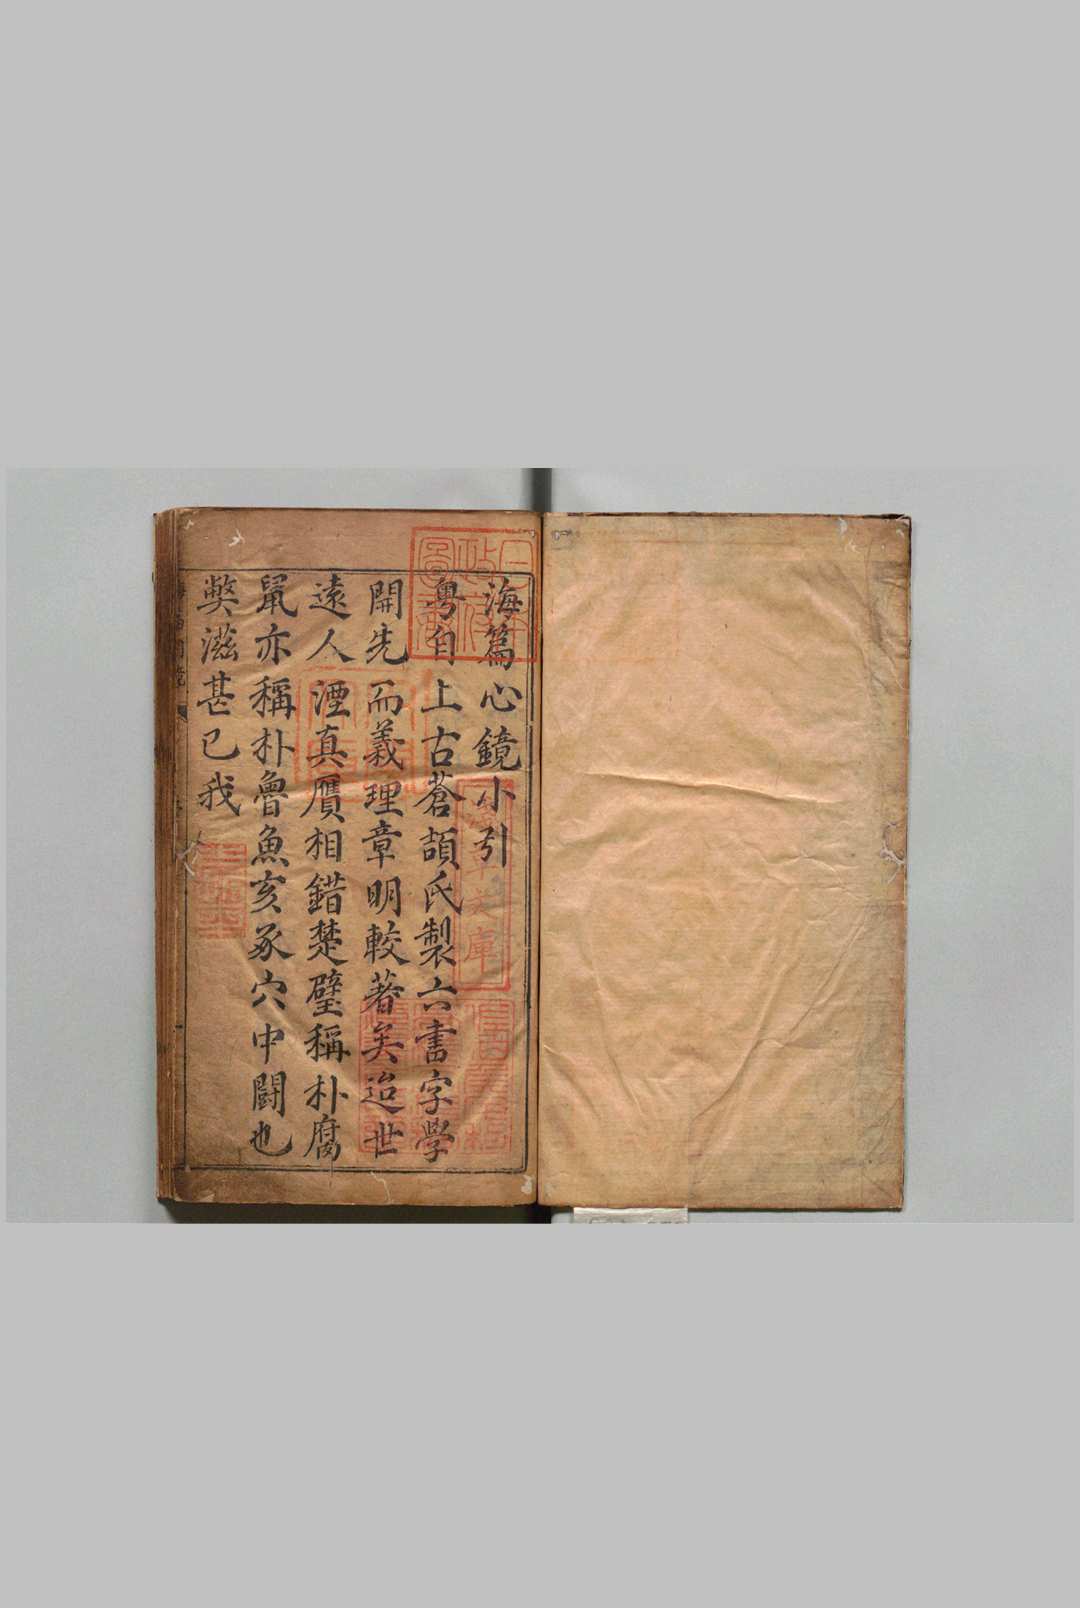 海篇心鏡小引
粵自上古蒼頡氏製六書字學
開先而義理章明較著矣迨世
遠人湮真贋相錯楚璧稱朴腐
鼠亦稱朴魯魚亥豕穴中鬪也
獘滋甚已我
日本
政府
圖書